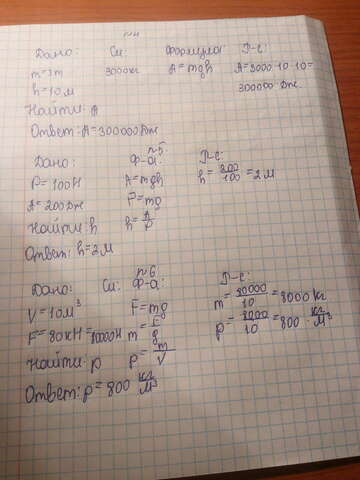 №4
Дано: Си: Формулы Р-е:
m=3т 3000кг A=mgh A=3000·10·10=
h=10м 300000 Дж
Найти: A
Ответ: A=300000Дж
№5
Дано: Ф-а: Р-е:
P=100Н A=mgh h=200/100=2м
A=200Дж F=mg
Найти: h h=A/P
Ответ: h=2м
№6
Дано: Си: Ф-а: Р-е:
V=10м³ F=mg m=80000/10=8000кг
F=80кН=80000Н m=F/g p=8000/10=800 кг/м³
Найти: p p=m/V
Ответ: p=800 кг/м³